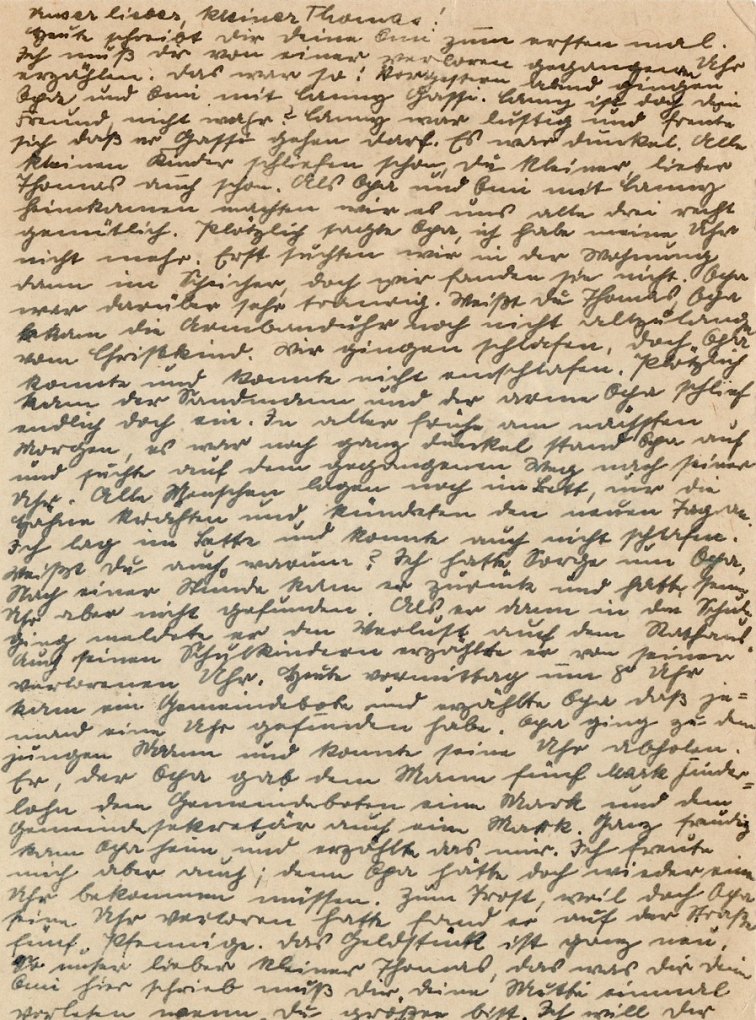 Unser lieber, kleiner Thomas!
Heute schreibt dir deine Omi zum ersten mal.
Ich muß dir von einer verloren gegangenen Uhr
erzählen. Das war so: Vorgestern abend gingen
Opa und Omi mit Lanny Gassi. Lanny ist doch dein
Freund, nicht wahr? Lanny war lustug und freute
sich daß er Gassi gehen darf. Es war dunkel. Alle
kleinen Kinder schliefen schon, du kleiner, lieber
Thomas auch schon. Als Opa und Omi mit Lanny
heimkamen machten wir es uns alle drei recht
gemütlich. Plötzlich sagte Opa, ich habe meine Uhr
nicht mehr. Erst suchten wir in der Wohnung
dann im Speicher, doch wir fanden sie nicht. Opa
war darüber sehr traurig. Weißt du Thomas, Opa
bekam die Armbanduhr noch nicht allzulange
vom Christkind. Wir gingen schlafen, doch Opa
konnte und konnte nicht einschlafen. Plötzlich
kam der Sandmann und der arme Opa schlief
endlich doch ein. In aller frühe am nächsten
Morgen, es war noch ganz dunkel stand Opa auf
und suchte auf dem gegangenen Weg nach seiner
Uhr. Alle Menschen lagen noch im Bett, nur die
Hähne krähten und kündeten den neuen Tag an.
Ich lag im Bette und konnte auch nicht schlafen.
Weißt du auch warum? Ich hatte Sorge um Opa,
Nach einer Stunde kam er zurück und hatte seine
Uhr aber nicht gefunden. Als er dann in die Schule
ging meldete er den Verlust auch dem Rathaus.
Auch seinen Schulkindern erzählte er von seiner
verlorenen Uhr. Heute vormittag um 8 Uhr
kam ein Gemeindebote und erzählte Opa daß je=
mand eine Uhr gefunden habe. Opa ging zu dem
jungen Mann und konnte seine Uhr abholen.
Er, der Opa gab dem Mann fünf Mark Finder=
lohn dem Gemeindeboten eine Mark und dem
Gemeindesekretär auch eine Mark. Ganz freudig
kam Opa heim und erzählte das mir. Ich freute
mich aber auch; denn Opa hätte doch wieder eine
Uhr bekommen müssen. Zum Trost, weil doch Opa
seine Uhr verloren hatte fand er auf der Straße
fünf Pfennige. Das Geldstück ist ganz neu.
So unser lieber kleiner Thomas, das was dir dein
Omi hier schrieb muß dir deine Mutti einmal
vorlesen wenn du größer bist. Ich will der